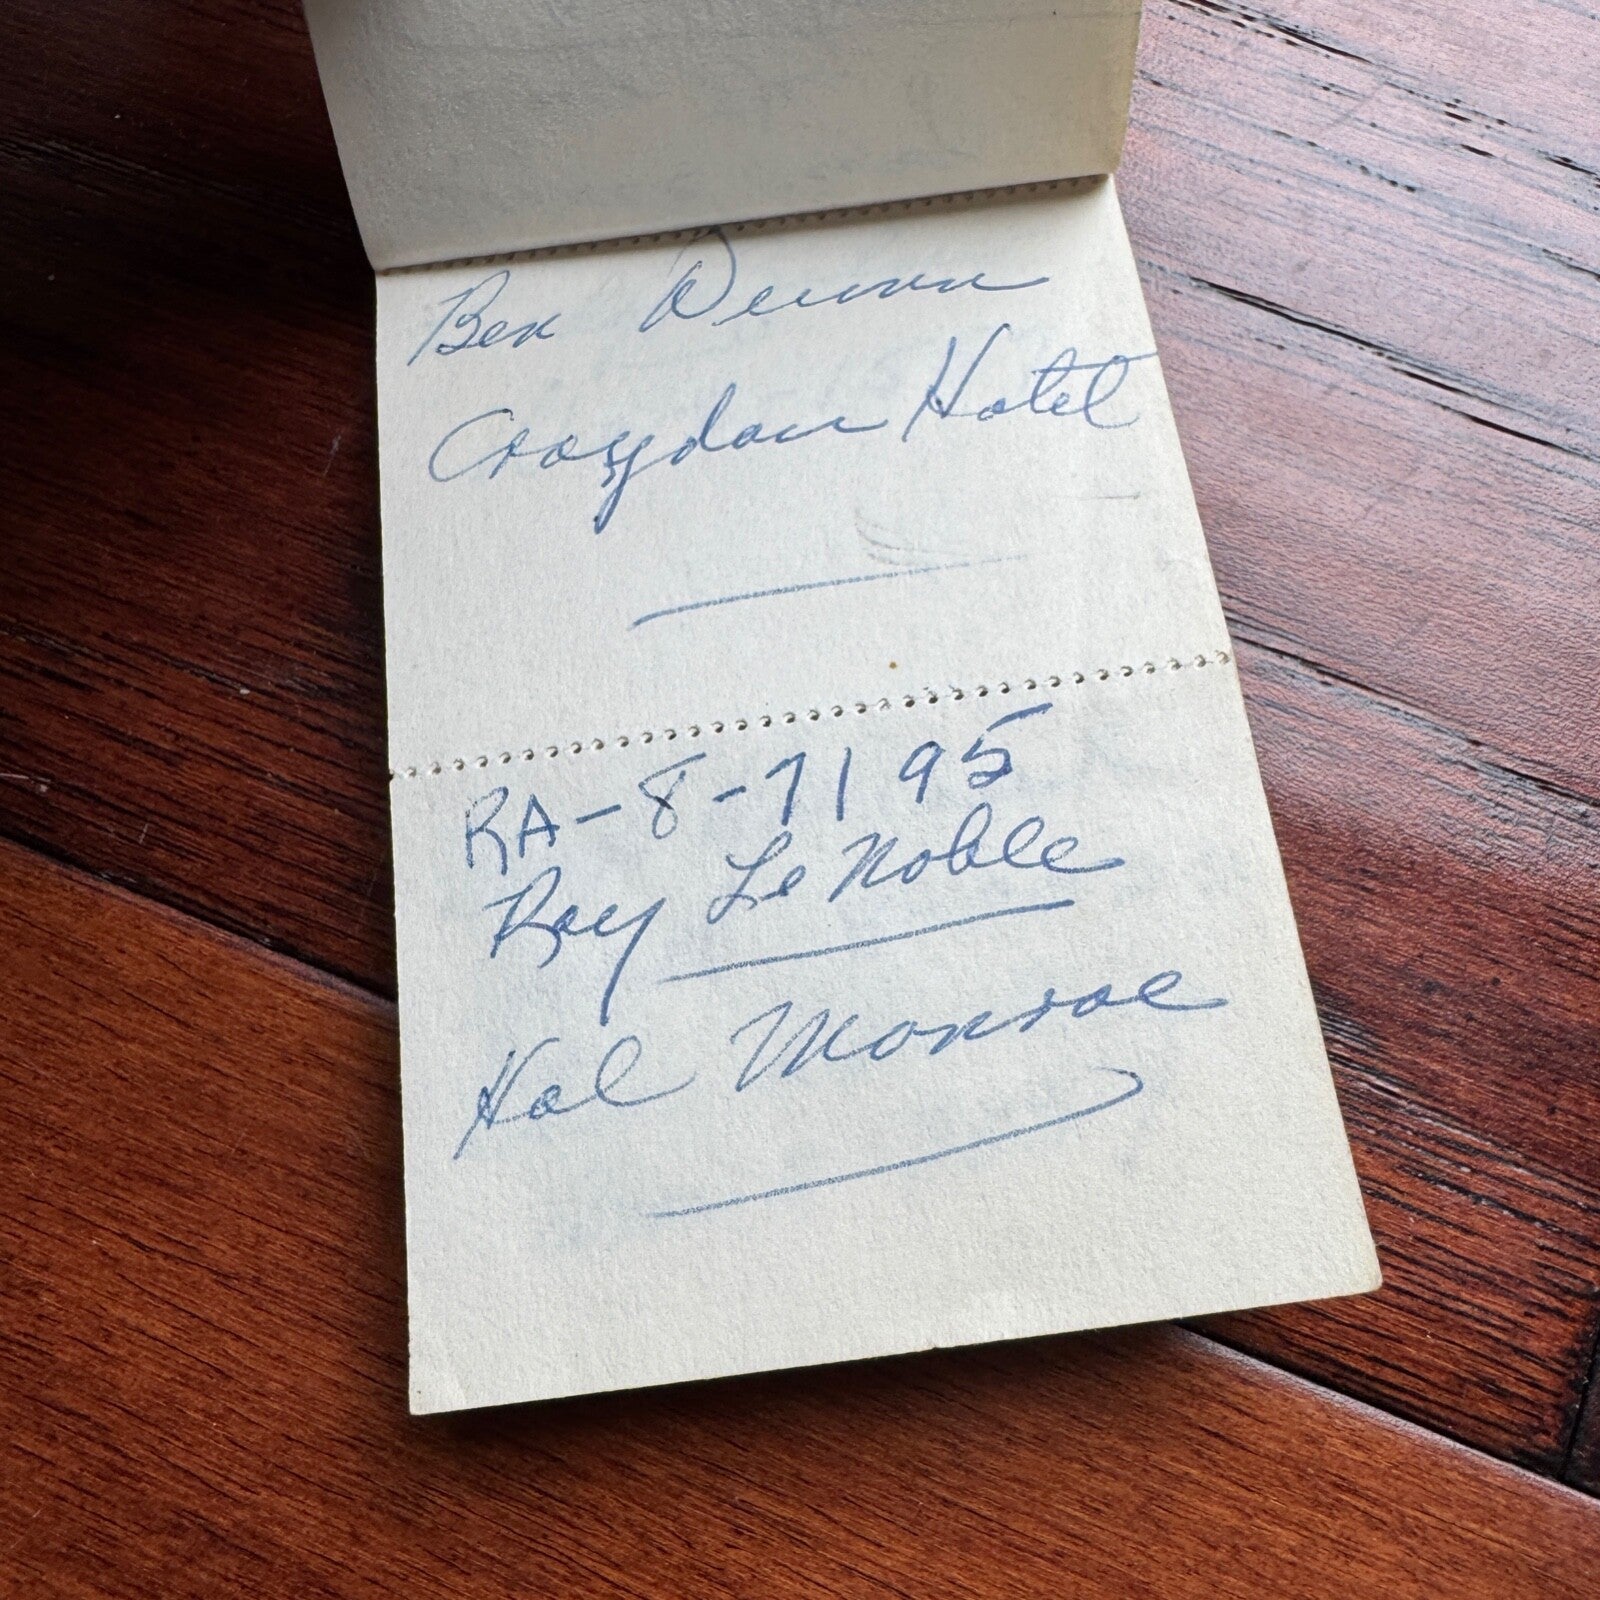 Ben
Croydon Hotel
RA-8-7195
Roy Le Noble
Hal Monroe